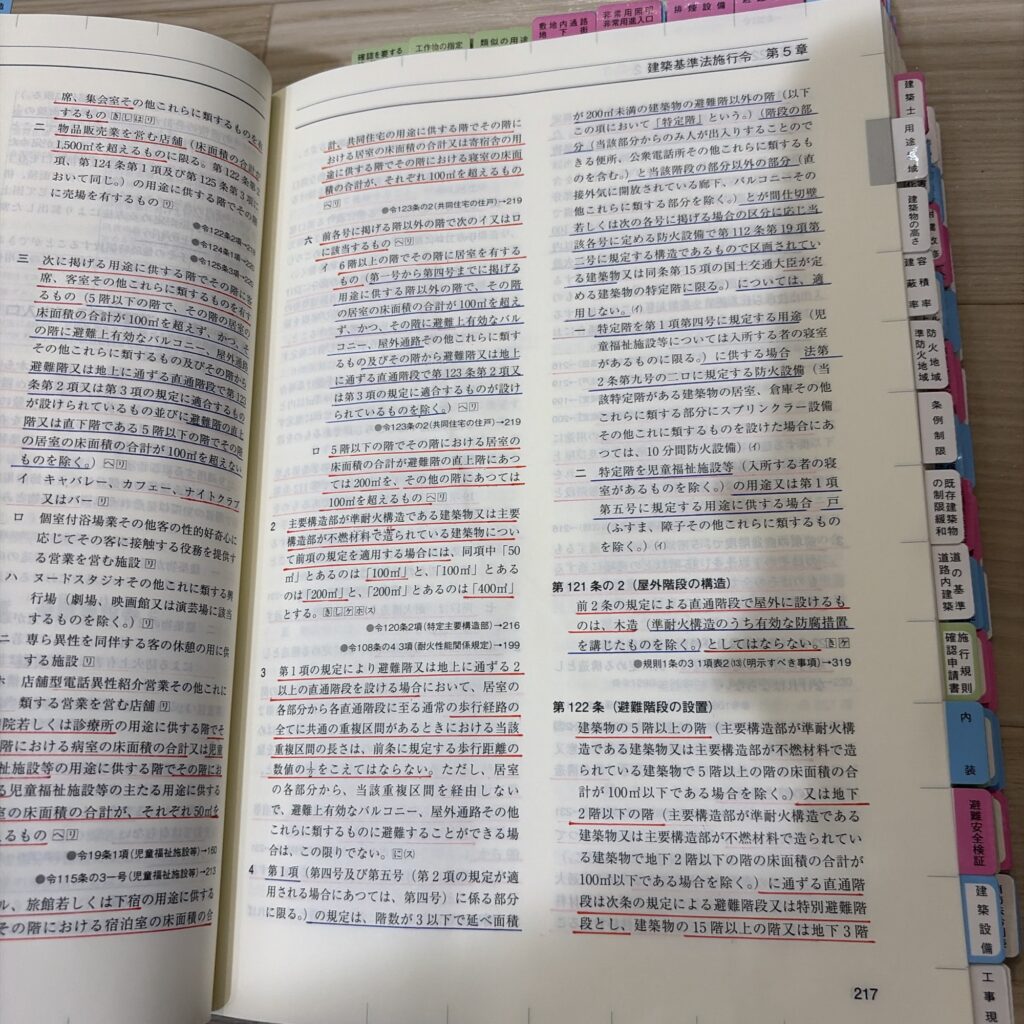 確認を要する
工作物の指定
類似の用途
敷地内通路
地下街
非常用照明
非常用進入口
排煙設備
建築基準法施行令 第5章
席、集会室その他これらに類するものを有
するもの
二 物品販売業を営む店舗(床面積の合計が
1,500㎡を超えるものに限る。第122条第2
項、第124条第1項及び第125条第3項に
おいて同じ。)の用途に供する階でその階
に売場を有するもの
●令122条2項→219
●令124条1項→220
●令125条3項→220
三 次に掲げる用途に供する階でその階に客
席、客室その他これらに類するものを有す
るもの(5階以下の階で、その階の居室の
床面積の合計が100㎡を超えず、かつ、そ
の階に避難上有効なバルコニー、屋外通路
その他これらに類するもの及びその階から
避難階又は地上に通ずる直通階段で第123
条第2項又は第3項の規定に適合するもの
が設けられているもの並びに避難階の直上
階又は直下階である5階以下の階でその階
の居室の床面積の合計が100㎡を超えない
ものを除く。)
イ キャバレー、カフェー、ナイトクラブ
又はバー
ロ 個室付浴場業その他客の性的好奇心に
応じてその客に接触する役務を提供す
る営業を営む施設
ハ ヌードスタジオその他これに類する興
行場(劇場、映画館又は演芸場に該当
するものを除く。)
ニ 専ら異性を同伴する客の休憩の用に供
する施設
ホ 店舗型電話異性紹介営業その他これに
類する営業を営む店舗
院若しくは診療所の用途に供する階でそ
階における病室の床面積の合計又は児童
祉施設等の用途に供する階でその階にお
る児童福祉施設等の主たる用途に供する
室の床面積の合計が、それぞれ50㎡を
えるもの
●令19条1項(児童福祉施設等)→160
●令115条の3一号(児童福祉施設等)→213
ル、旅館若しくは下宿の用途に供する
その階における宿泊室の床面積の合
計、共同住宅の用途に供する階でその階に
おける居室の床面積の合計又は寄宿舎の用
途に供する階でその階における寝室の床面
積の合計が、それぞれ100㎡を超えるもの
●令123条の2(共同住宅の住戸)→219
六 前各号に掲げる階以外の階で次のイ又はロ
に該当するもの
イ 6階以上の階でその階に居室を有する
もの(第一号から第四号までに掲げる
用途に供する階以外の階で、その階の
居室の床面積の合計が100㎡を超え
ず、かつ、その階に避難上有効なバル
コニー、屋外通路その他これらに類す
るもの及びその階から避難階又は地上
に通ずる直通階段で第123条第2項又
は第3項の規定に適合するものが設け
られているものを除く。)
●令123条の2(共同住宅の住戸)→219
ロ 5階以下の階でその階における居室の
床面積の合計が避難階の直上階にあつ
ては200㎡を、その他の階にあつては
100㎡を超えるもの
2 主要構造部が準耐火構造である建築物又は主要
構造部が不燃材料で造られている建築物につい
て前項の規定を適用する場合には、同項中「50
㎡」とあるのは「100㎡」と、「100㎡」とある
のは「200㎡」と、「200㎡」とあるのは「400㎡」
とする。
●令120条2項(特定主要構造部)→216
●令108条の4 3項(耐火性能関係規定)→199
3 第1項の規定により避難階又は地上に通ずる2
以上の直通階段を設ける場合において、居室の
各部分から各直通階段に至る通常の歩行経路の
全てに共通の重複区間があるときにおける当該
重複区間の長さは、前条に規定する歩行距離の
数値の1/2をこえてはならない。ただし、居室
の各部分から、当該重複区間を経由しない
で、避難上有効なバルコニー、屋外通路その他
これらに類するものに避難することができる場
合は、この限りでない。
4 第1項(第四号及び第五号(第2項の規定が適
用される場合にあつては、第四号)に係る部分
に限る。)の規定は、階数が3以下で延べ面積
が200㎡未満の建築物の避難階以外の階(以下
この項において「特定階」という。)(階段の部
分(当該部分からのみ人が出入りすることので
きる便所、公衆電話所その他これらに類するも
のを含む。)と当該階段の部分以外の部分(直
接外気に開放されている廊下、バルコニーその
他これらに類する部分を除く。)とが間仕切壁
若しくは次の各号に掲げる場合の区分に応じ当
該各号に定める防火設備で第112条第19項第
二号に規定する構造であるもので区画されてい
る建築物又は同条第15項の国土交通大臣が定
める建築物の特定階に限る。)については、適
用しない。(イ)
一 特定階を第1項第四号に規定する用途(児
童福祉施設等については入所する者の寝室
があるものに限る。)に供する場合 法第
2条第九号の二ロに規定する防火設備(当
該特定階がある建築物の居室、倉庫その他
これらに類する部分にスプリンクラー設備
その他これに類するものを設けた場合にあ
つては、10分間防火設備)(イ)
二 特定階を児童福祉施設等(入所する者の寝
室があるものを除く。)の用途又は第1項
第五号に規定する用途に供する場合 戸
(ふすま、障子その他これらに類するもの
を除く。)(イ)
第121条の2(屋外階段の構造)
前2条の規定による直通階段で屋外に設けるも
のは、木造(準耐火構造のうち有効な防腐措置
を講じたものを除く。)としてはならない。
●規則1条の3 1項表2⒀(明示すべき事項)→319
第122条(避難階段の設置)
建築物の5階以上の階(主要構造部が準耐火構
造である建築物又は主要構造部が不燃材料で造
られている建築物で5階以上の階の床面積の合
計が100㎡以下である場合を除く。)又は地下
2階以下の階(主要構造部が準耐火構造である
建築物又は主要構造部が不燃材料で造られてい
る建築物で地下2階以下の階の床面積の合計が
100㎡以下である場合を除く。)に通ずる直通階
段は次条の規定による避難階段又は特別避難階
段とし、建築物の15階以上の階又は地下3階
217
建築士
用途地域
建築物の高さ
容積率
建蔽率
防火地域
準防火地域
条例制限
既存建築物
の制限緩和
道の基準
道路内建築
施行規則
確認申請書
内装
避難安全検証
建築設備
工事現